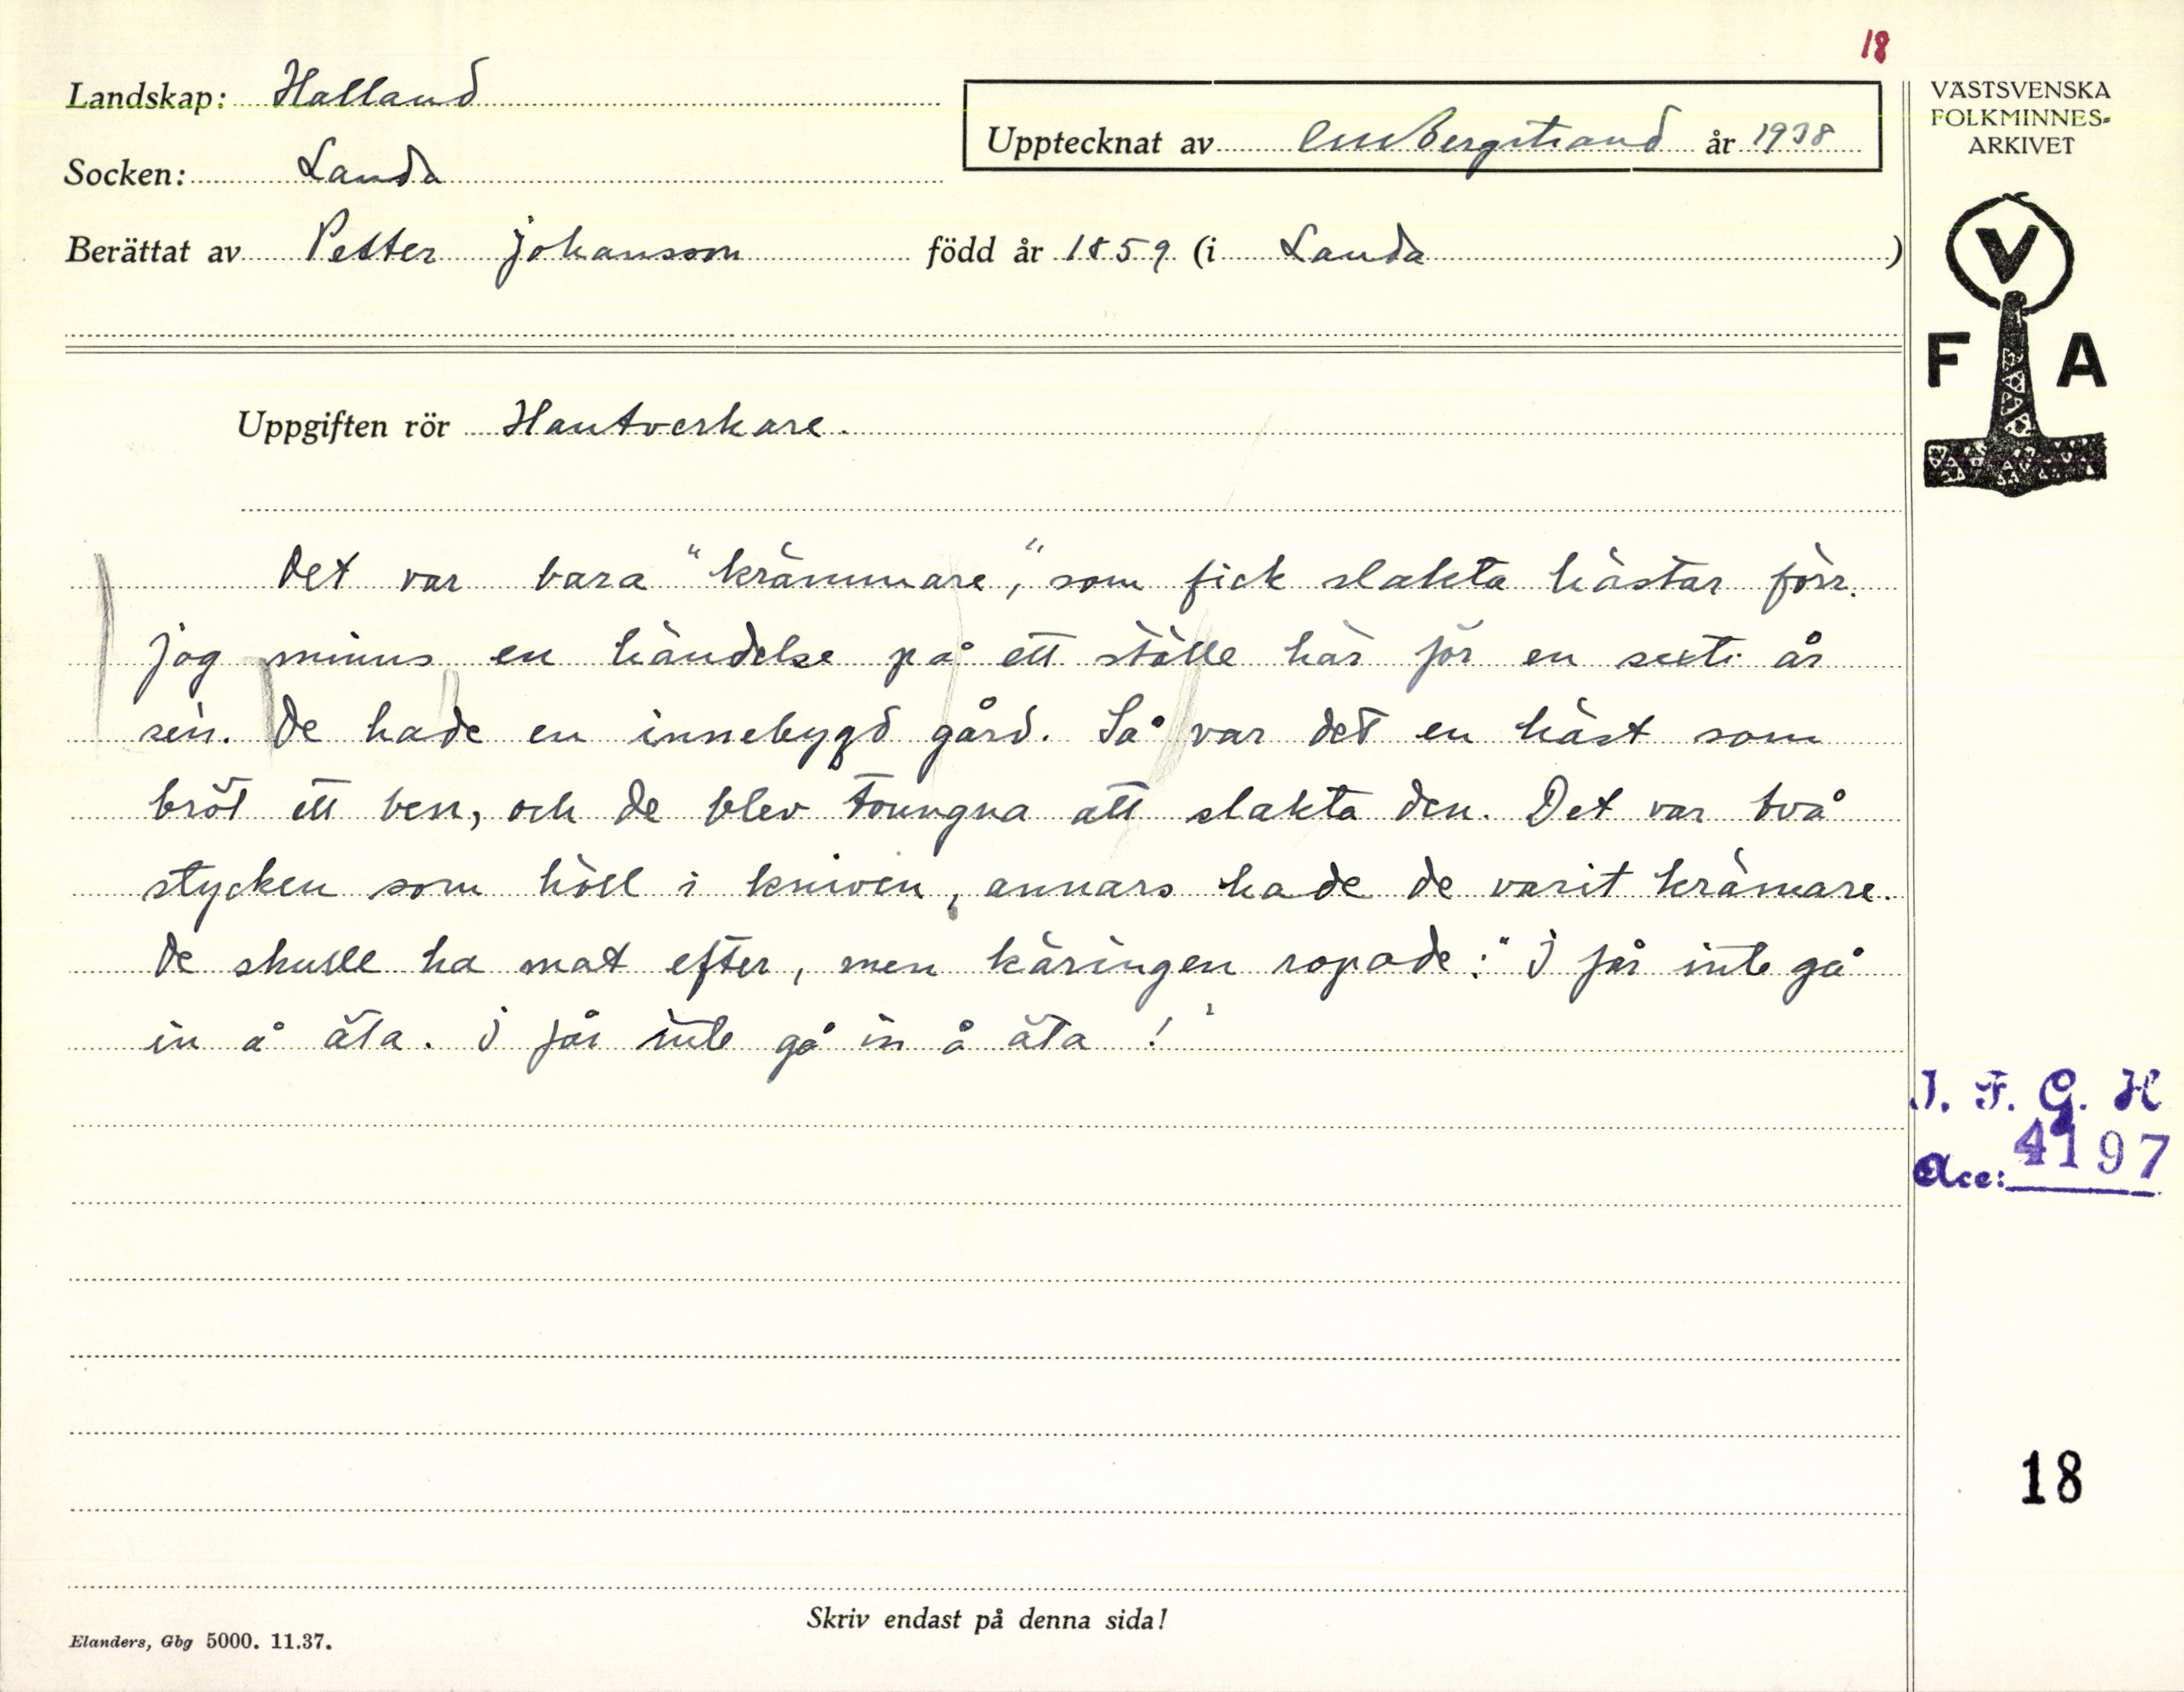 18
Landskap: Halland
Upptecknat av CMBergstrand år 1938
VÄSTSVENSKA
FOLKMINNES-
ARKIVET
Socken: Landa
Berättat av Petter Johansson född år 1859 (i Landa )
V
F A
Uppgiften rör Hantverkare.
Det var bara "krämmare," som fick slakta hästar förr.
Jag minns en händelse på ett ställe här för en sexti år
sen. De hade en innebygd gård. Så var det en häst som
bröt ett ben, och de blev tvungna att slakta den. Det var två
stycken som höll i kniven, annars hade de varit krämare.
De skulle ha mat efter, men käringen ropade: "I får inte gå
in å äta. I får inte gå in å äta!"
I. F. G. H
Acc: 4197
18
Skriv endast på denna sida!
Elanders, Gbg 5000. 11.37.